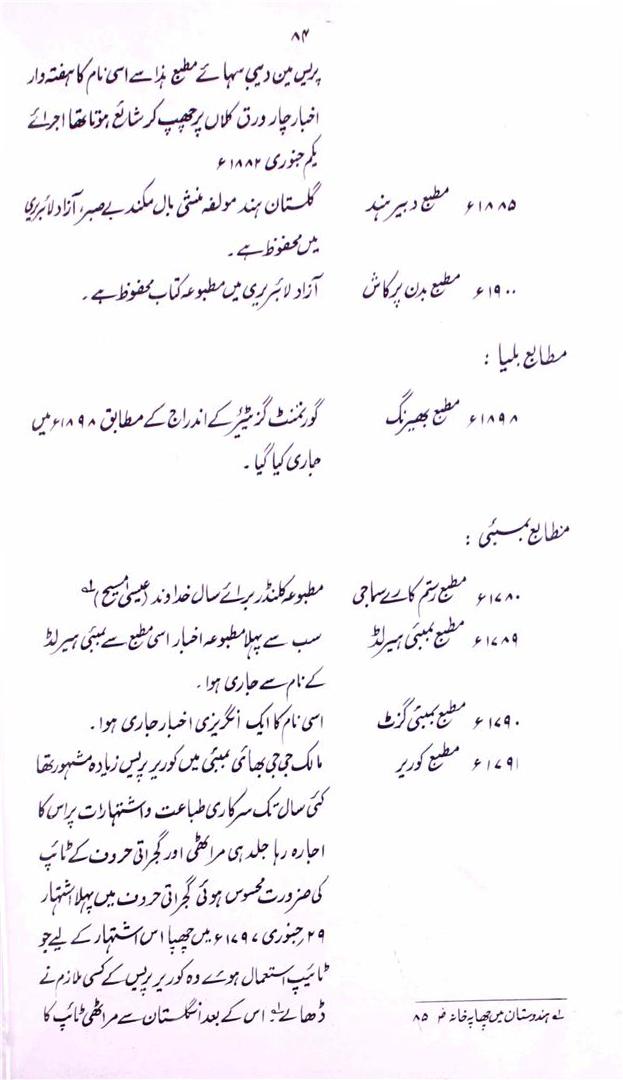 ۸۴
پریس مین دیبی سہائے مطبع ہذا سے اسی نام کا ہفتہ وار
اخبار چار ورق کلاں پر چھپ کر شائع ہوتا تھا اجرائے
یکم جنوری ۱۸۸۲ء
۱۸۸۵ء مطبع دبیر ہند گلستان ہند مولفہ منشی بال مکند بے صبر، آزاد لائبریری
میں محفوظ ہے۔
۱۹۰۰ء مطبع بدن پرکاش آزاد لائبریری میں مطبوعہ کتاب محفوظ ہے۔
مطابع بلیا :
۱۸۹۸ء مطبع بھیرنگ گورنمنٹ گزیٹیر کے اندراج کے مطابق ۱۸۹۸ء میں
جاری کیا گیا۔
مطابع بمبئی :
۱۷۸۰ء مطبع رستم کارے ساجی مطبوعہ کلنڈر برائے سال خداوند (عیسیٰ المسیح) لہ
۱۷۸۹ء مطبع بمبئی ہیرلڈ سب سے پہلا مطبوعہ اخبار اسی مطبع سے بمبئی ہیرلڈ
کے نام سے جاری ہوا۔
۱۷۹۰ء مطبع بمبئی گزٹ اسی نام کا ایک انگریزی اخبار جاری ہوا۔
۱۷۹۱ء مطبع کوریر مالک جی جی بھائی بمبئی میں کوریر پریس زیادہ مشہور تھا
کئی سال تک سرکاری طباعت و اشتہارات پر اس کا
اجارہ رہا جلد ہی مراٹھی اور گجراتی حروف کے ٹائپ
کی ضرورت محسوس ہوئی گجراتی حروف میں پہلا اشتہار
۲۹؍جنوری ۱۷۹۷ء میں چھپا اس اشتہار کے لیے جو
ٹائیپ استعمال ہوے وہ کوریر پریس کے کسی ملازم نے
ڈھالے لہ اس کے بعد انگلستان سے مراٹھی ٹائپ کا
لہ ہندوستان میں چھاپہ خانہ ص ۸۵